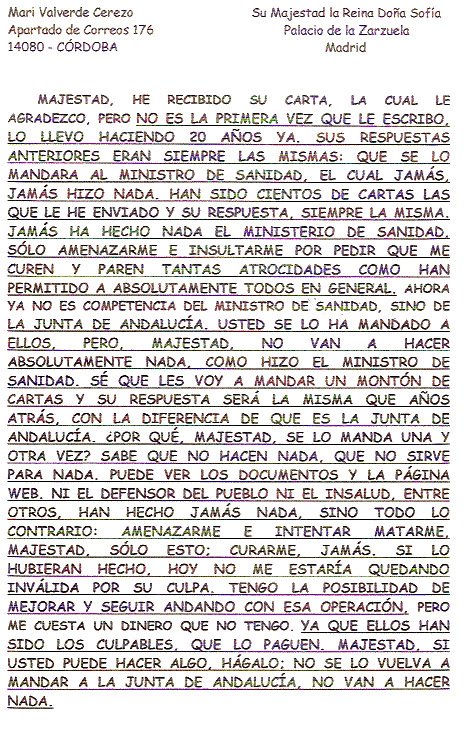 Mari Valverde Cerezo
Apartado de Correos 176
14080 - CÓRDOBA
Su Majestad la Reina Doña Sofía
Palacio de la Zarzuela
Madrid
MAJESTAD, HE RECIBIDO SU CARTA, LA CUAL LE
AGRADEZCO, PERO NO ES LA PRIMERA VEZ QUE LE ESCRIBO,
LO LLEVO HACIENDO 20 AÑOS YA. SUS RESPUESTAS
ANTERIORES ERAN SIEMPRE LAS MISMAS: QUE SE LO
MANDARA AL MINISTRO DE SANIDAD, EL CUAL JAMÁS,
JAMÁS HIZO NADA. HAN SIDO CIENTOS DE CARTAS LAS
QUE LE HE ENVIADO Y SU RESPUESTA, SIEMPRE LA MISMA.
JAMÁS HA HECHO NADA EL MINISTERIO DE SANIDAD.
SÓLO AMENAZARME E INSULTARME POR PEDIR QUE ME
CUREN Y PAREN TANTAS ATROCIDADES COMO HAN
PERMITIDO A ABSOLUTAMENTE TODOS EN GENERAL. AHORA
YA NO ES COMPETENCIA DEL MINISTRO DE SANIDAD, SINO DE
LA JUNTA DE ANDALUCÍA. USTED SE LO HA MANDADO A
ELLOS, PERO, MAJESTAD, NO VAN A HACER
ABSOLUTAMENTE NADA, COMO HIZO EL MINISTRO DE
SANIDAD. SÉ QUE LES VOY A MANDAR UN MONTÓN DE
CARTAS Y SU RESPUESTA SERÁ LA MISMA QUE AÑOS
ATRÁS, CON LA DIFERENCIA DE QUE ES LA JUNTA DE
ANDALUCÍA. ¿POR QUÉ, MAJESTAD, SE LO MANDA UNA Y
OTRA VEZ? SABE QUE NO HACEN NADA, QUE NO SIRVE
PARA NADA. PUEDE VER LOS DOCUMENTOS Y LA PÁGINA
WEB. NI EL DEFENSOR DEL PUEBLO NI EL INSALUD, ENTRE
OTROS, HAN HECHO JAMÁS NADA, SINO TODO LO
CONTRARIO: AMENAZARME E INTENTAR MATARME,
MAJESTAD, SÓLO ESTO; CURARME, JAMÁS. SI LO
HUBIERAN HECHO, HOY NO ME ESTARÍA QUEDANDO
INVÁLIDA POR SU CULPA. TENGO LA POSIBILIDAD DE
MEJORAR Y SEGUIR ANDANDO CON ESA OPERACIÓN, PERO
ME CUESTA UN DINERO QUE NO TENGO. YA QUE ELLOS HAN
SIDO LOS CULPABLES, QUE LO PAGUEN. MAJESTAD, SI
USTED PUEDE HACER ALGO, HÁGALO; NO SE LO VUELVA A
MANDAR A LA JUNTA DE ANDALUCÍA, NO VAN A HACER
NADA.